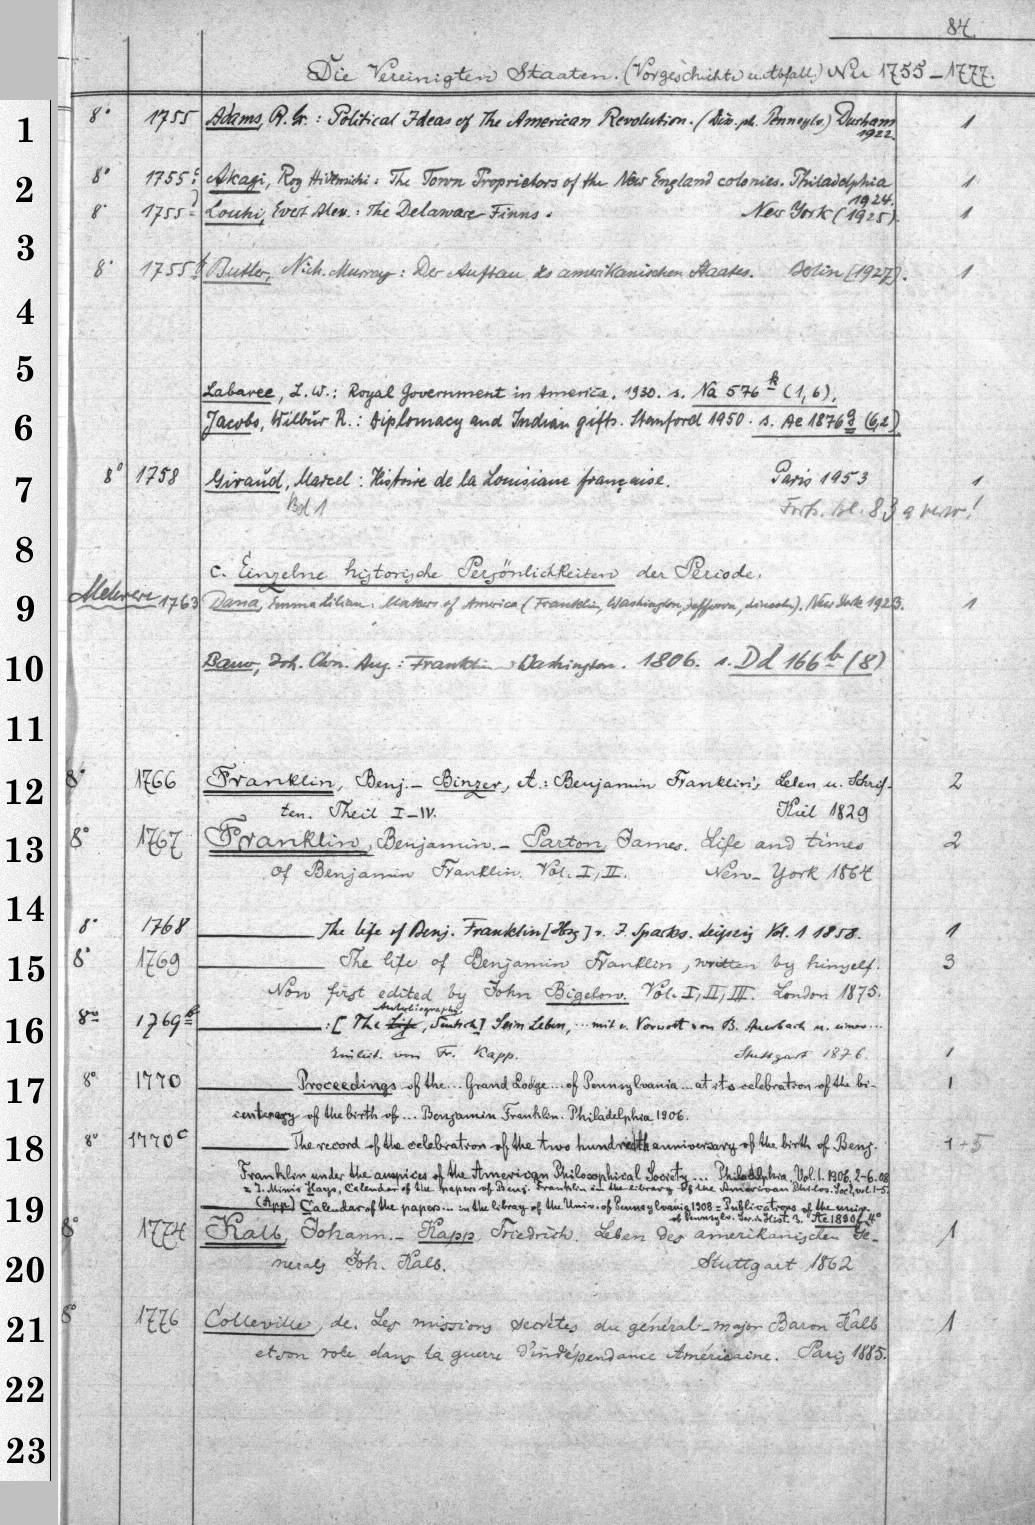 84
Die Vereinigten Staaten. (Vorgeschichte u. Abfall.) Nr 1755–1777.
1 8° 1755 Adams, R. G.: Political Ideas of the American Revolution. (Diss. ph. Pennsylv.) Durham 1
1922.
2 8° 1755c Akagi, Roy Hidemichi: The Town Proprietors of the New England colonies. Philadelphia 1
1924.
8° 1755 Louhi, Evert Alex.: The Delaware Finns. New York (1925). 1
3 8° 1755 Butler, Nich. Murray: Der Aufbau des amerikanischen Staates. Berlin [1927]. 1
4
5 Labaree, L. W.: Royal Government in America. 1930. s. Na 576k (1,6).
6 Jacobs, Wilbur R.: Diplomacy and Indian gifts. Stanford 1950. s. Ae 1876g (6,2)
7 8° 1758 Giraud, Marcel: Histoire de la Louisiane française. Paris 1953 1
Bd 1 Forts. bl. 83a verso!
8 c. Einzelne historische Persönlichkeiten der Periode.
9 Mehrere 1763 Dana, Emma Lilian: Makers of America (Franklin, Washington, Jefferson, Lincoln). New York 1923. 1
10 Joh. Chrn. Aug.: Franklin Washington. 1806. s. Dd 166b (8)
11
12 8° 1766 Franklin, Benj.– Binzer, A.: Benjamin Franklin's Leben u. Schrif- 2
ten. Theil I–IV. Kiel 1829
13 8° 1767 Franklin, Benjamin.– Parton, James. Life and times 2
of Benjamin Franklin. Vol. I, II. New-York 1864
14 8° 1768 The life of Benj. Franklin [Hrsg] v. J. Sparks. Leipzig Vol. 1 1858. 1
15 8° 1769 The life of Benjamin Franklin, written by himself. 3
Now first edited by John Bigelow. Vol. I, II, III. London 1875.
Autobiography
16 8° 1769b : [The Life, Deutsch] Sein Leben, ... mit e. Vorwort von B. Auerbach u. einer ...
Einleit. von Fr. Kapp. Stuttgart 1876. 1
17 8° 1770 Proceedings of the ... Grand Lodge ... of Pennsylvania ... at its celebration of the bi- 1
centenary of the birth of ... Benjamin Franklin. Philadelphia 1906.
18 8° 1770c The record of the celebration of the two hundredth anniversary of the birth of Benj. 1+5
Franklin under the auspices of the American Philosophical Society ... Philadelphia. Vol. 1. 1906, 2–6. 08
= J. Minis Hays, Calendar of the papers of Benj. Franklin in the library of the American Philos. Soc., vol. 1–5.
19 (App.) Calendar of the papers ... in the library of the Univ. of Pennsylvania 1908 = Publications of the univ.
of Pennsylv. Ser. in Hist. 3. Ae 1890f 4°
8° 1774 Kalb, Johann.– Kapp, Friedrich. Leben des amerikanischen Ge- 1
20 nerals Joh. Kalb. Stuttgart 1862
21 8° 1776 Colleville, de. Les missions secrètes du général-major Baron Kalb 1
et son role dans la guerre d'indépendance Américaine. Paris 1885.
22
23